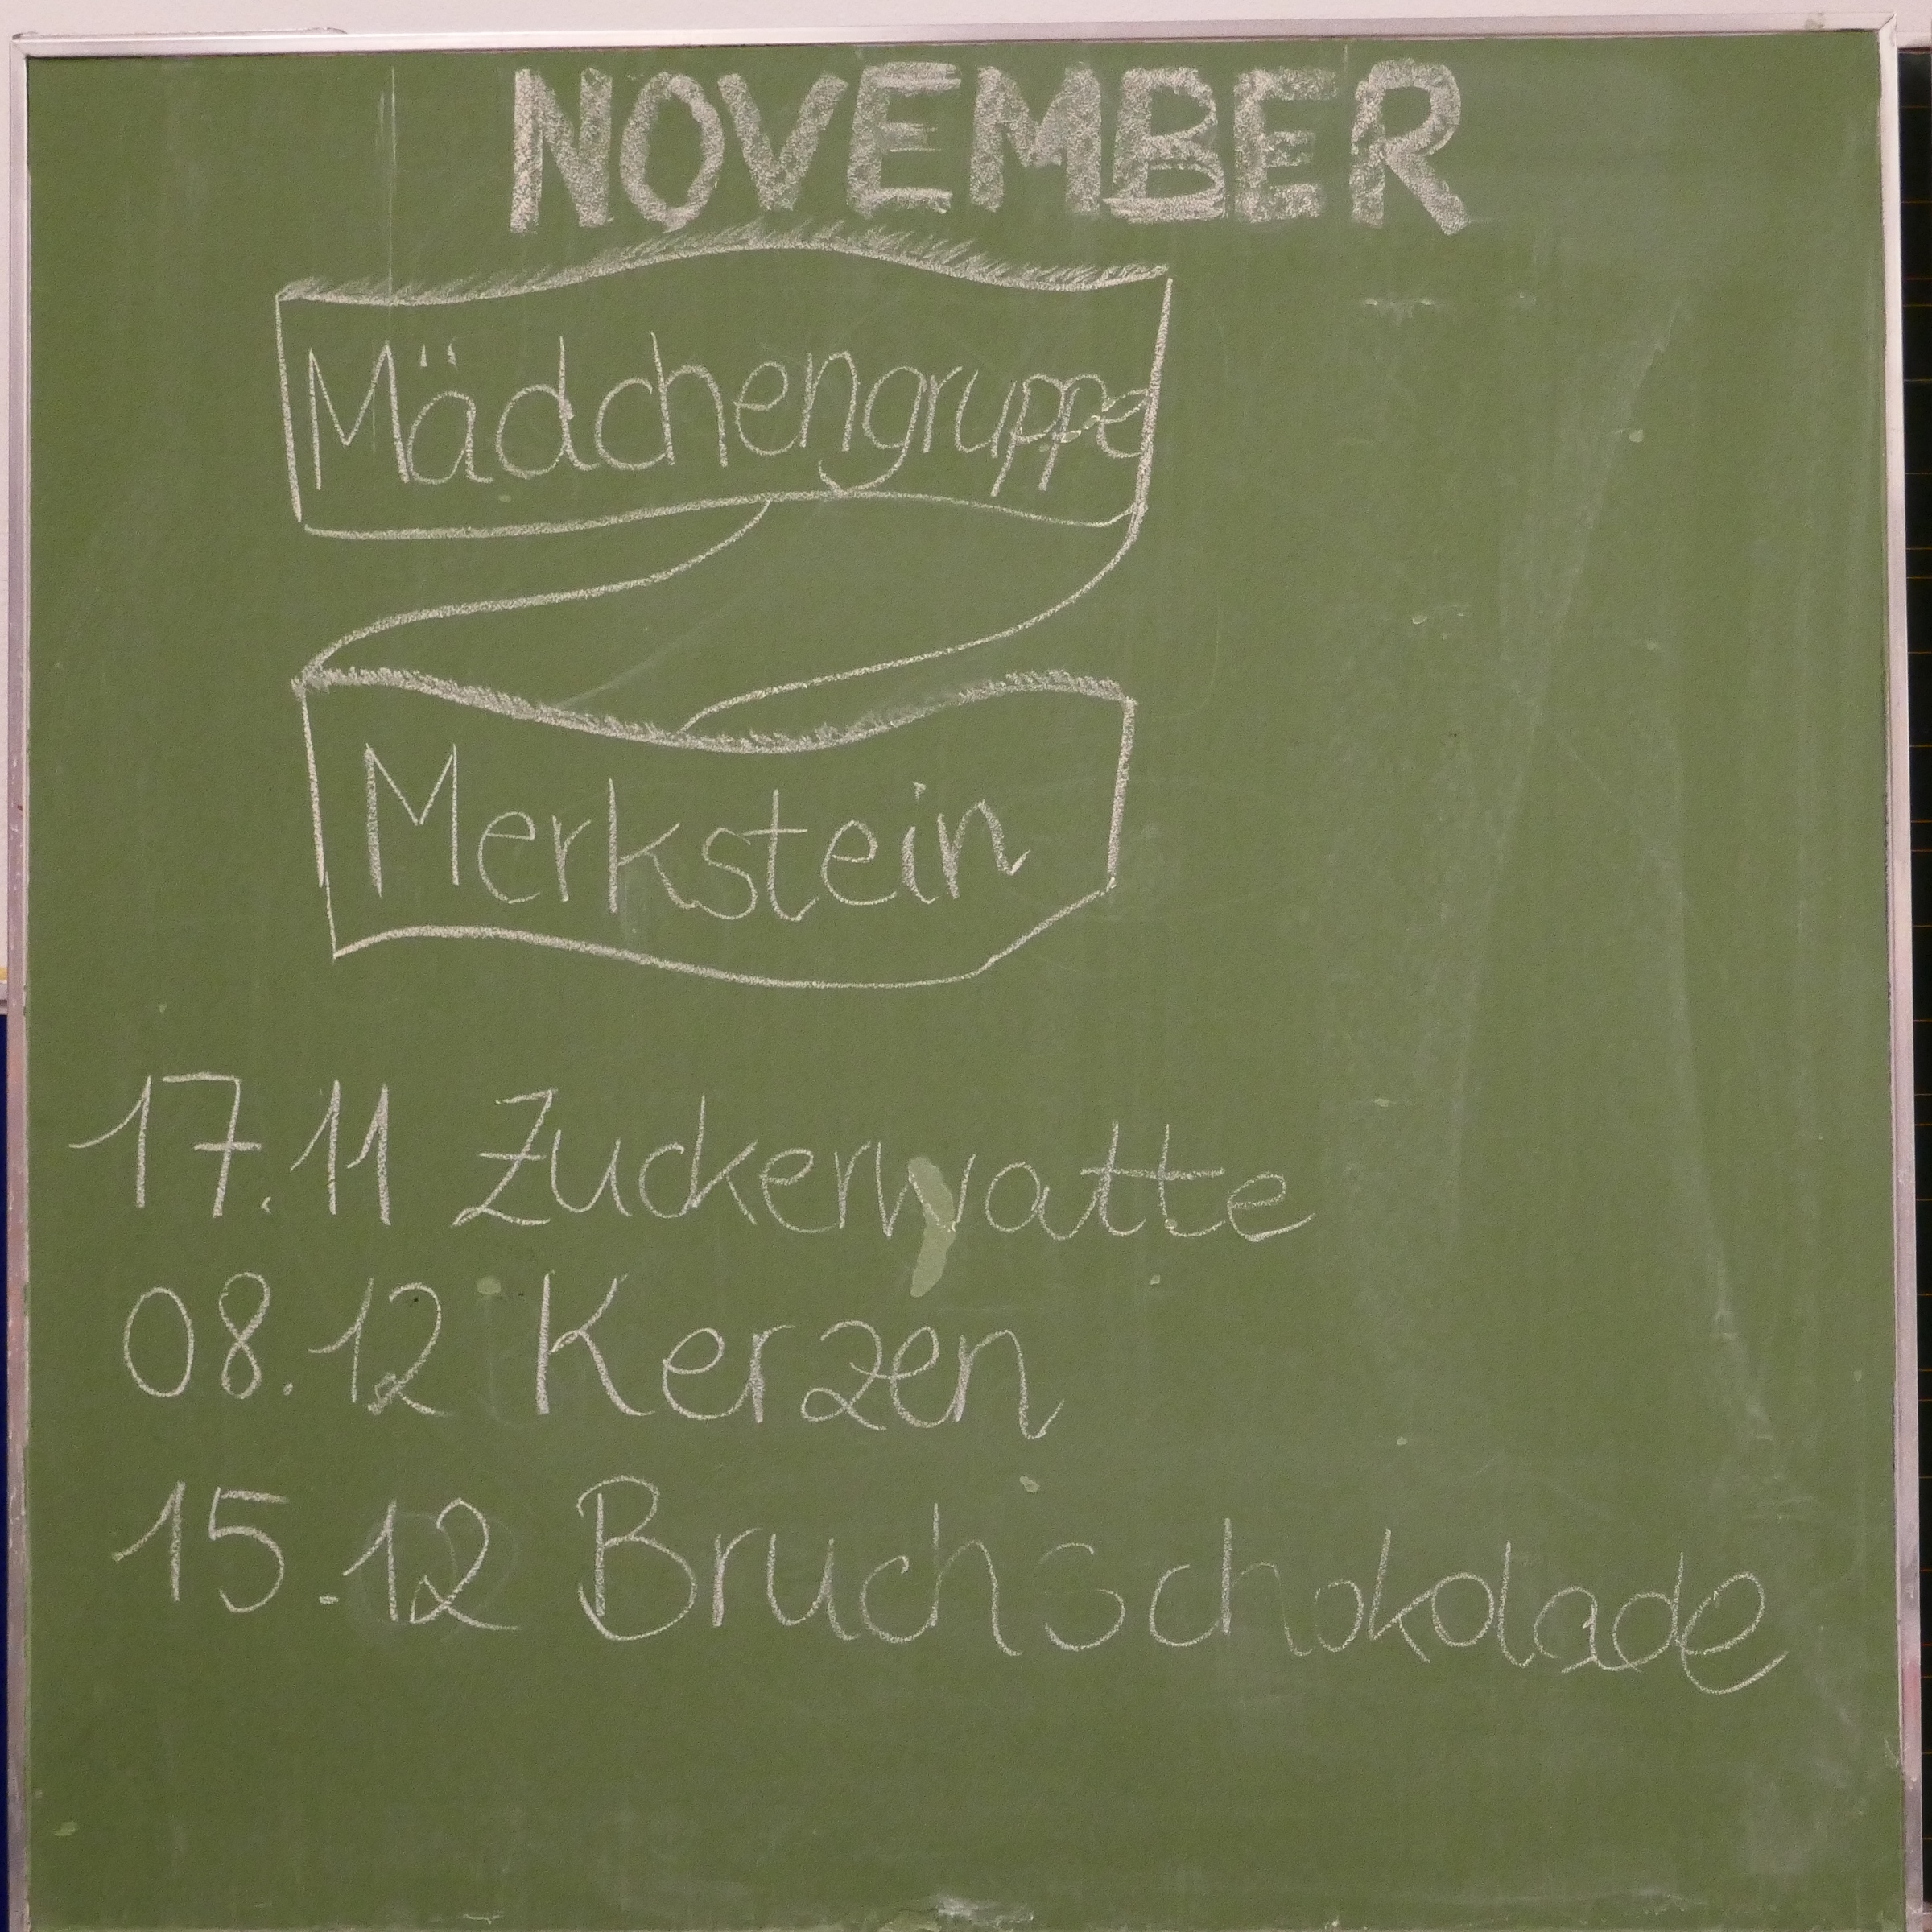 NOVEMBER
Mädchengruppe
Merkstein
17.11 Zuckerwatte
08.12 Kerzen
15.12 Bruchschokolade